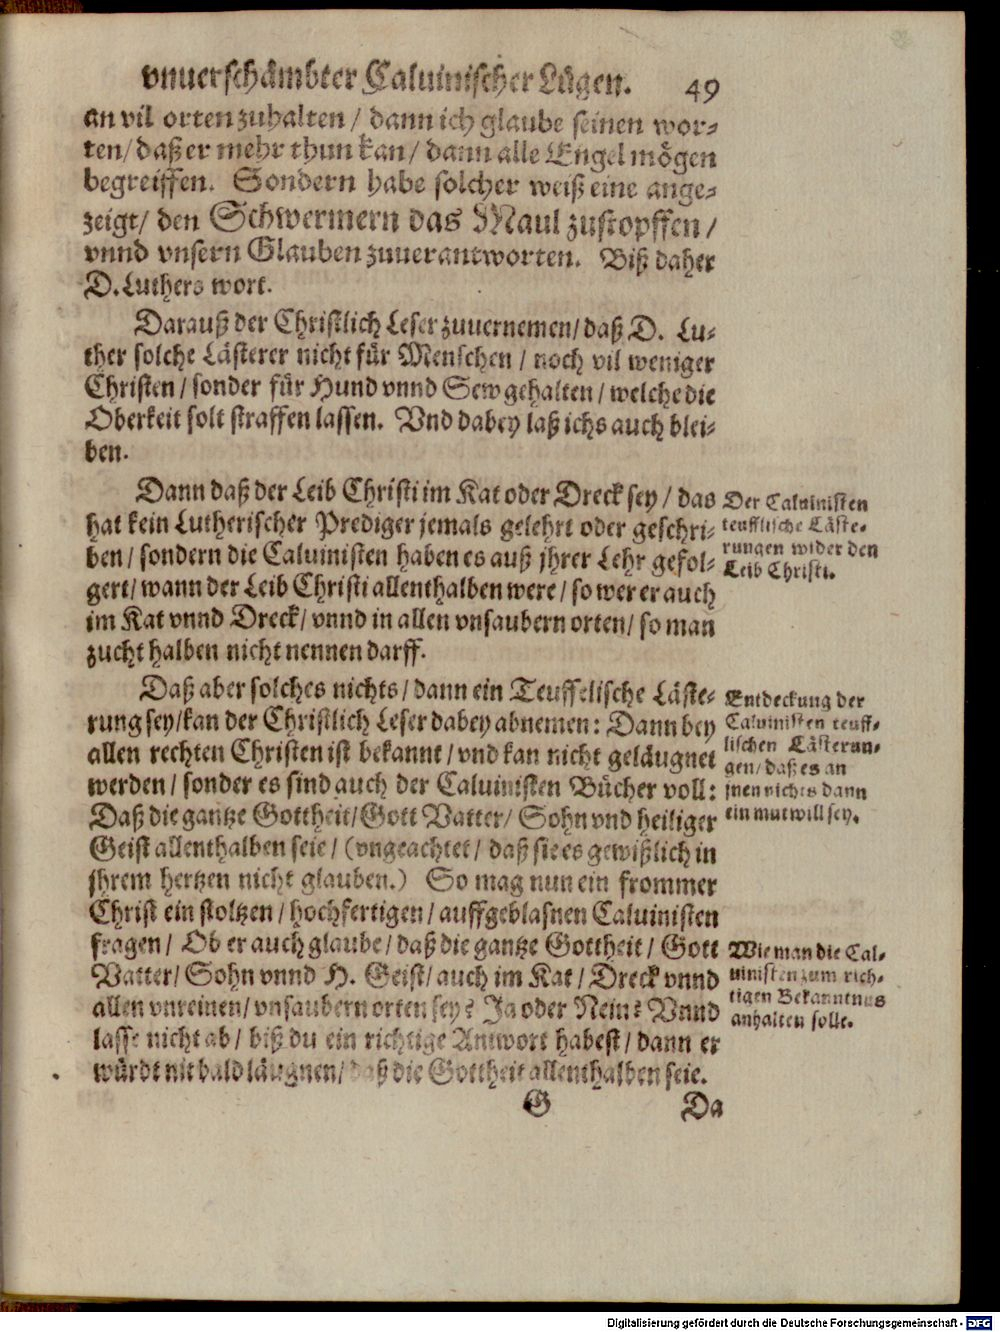 vnuerschämbter Caluinischer Lügen. 49
an vil orten zuhalten / dann ich glaube seinen wor-
ten / daß er mehr thun kan / dann alle Engel mögen
begreiffen. Sondern habe solcher weiß eine ange-
zeigt / den Schwermern das Maul zustopffen /
vnnd vnsern Glauben zuuerantworten. Biß daher
D. Luthers wort.
Darauß der Christlich Leser zuuernemen / daß D. Lu-
ther solche Lästerer nicht für Menschen / noch vil weniger
Christen / sonder für Hund vnnd Sew gehalten / welche die
Oberkeit solt straffen lassen. Vnd dabey laß ichs auch blei-
ben.
Dann daß der Leib Christi im Kat oder Dreck sey / das
hat kein Lutherischer Prediger jemals gelehrt oder geschri-
ben / sondern die Caluinisten haben es auß jhrer Lehr gefol-
gert / wann der Leib Christi allenthalben were / so wer er auch
im Kat vnnd Dreck / vnnd in allen vnsaubern orten / so man
zucht halben nicht nennen darff.
Der Caluinisten
teufflische Läste-
rungen wider den
Leib Christi.
Daß aber solches nichts / dann ein Teuffelische Läste-
rung sey / kan der Christlich Leser dabey abnemen: Dann bey
allen rechten Christen ist bekannt / vnd kan nicht geläugnet
werden / sonder es sind auch der Caluinisten Bücher voll:
Daß die gantze Gottheit / Gott Vatter / Sohn vnd heiliger
Geist allenthalben seie / (vngeachtet / daß sie es gewißlich in
jhrem hertzen nicht glauben.) So mag nun ein frommer
Christ ein stoltzen / hochfertigen / auffgeblasnen Caluinisten
fragen / Ob er auch glaube / daß die gantze Gottheit / Gott
Vatter / Sohn vnnd H. Geist / auch im Kat / Dreck vnnd
allen vnreinen / vnsaubern orten sey? Ja oder Nein? Vnnd
lasse nicht ab / biß du ein richtige Antwort habest / dann er
würdt nit bald läugnen / daß die Gottheit allenthalben seie.
Entdeckung der
Caluinisten teuff-
lischen Lästerun-
gen / daß es an
jnen nichts dann
ein mutwill sey.
Wie man die Cal-
uinisten zum rich-
tigen Bekanntnus
anhalten solle.
G Da
Digitalisierung gefördert durch die Deutsche Forschungsgemeinschaft - DFG